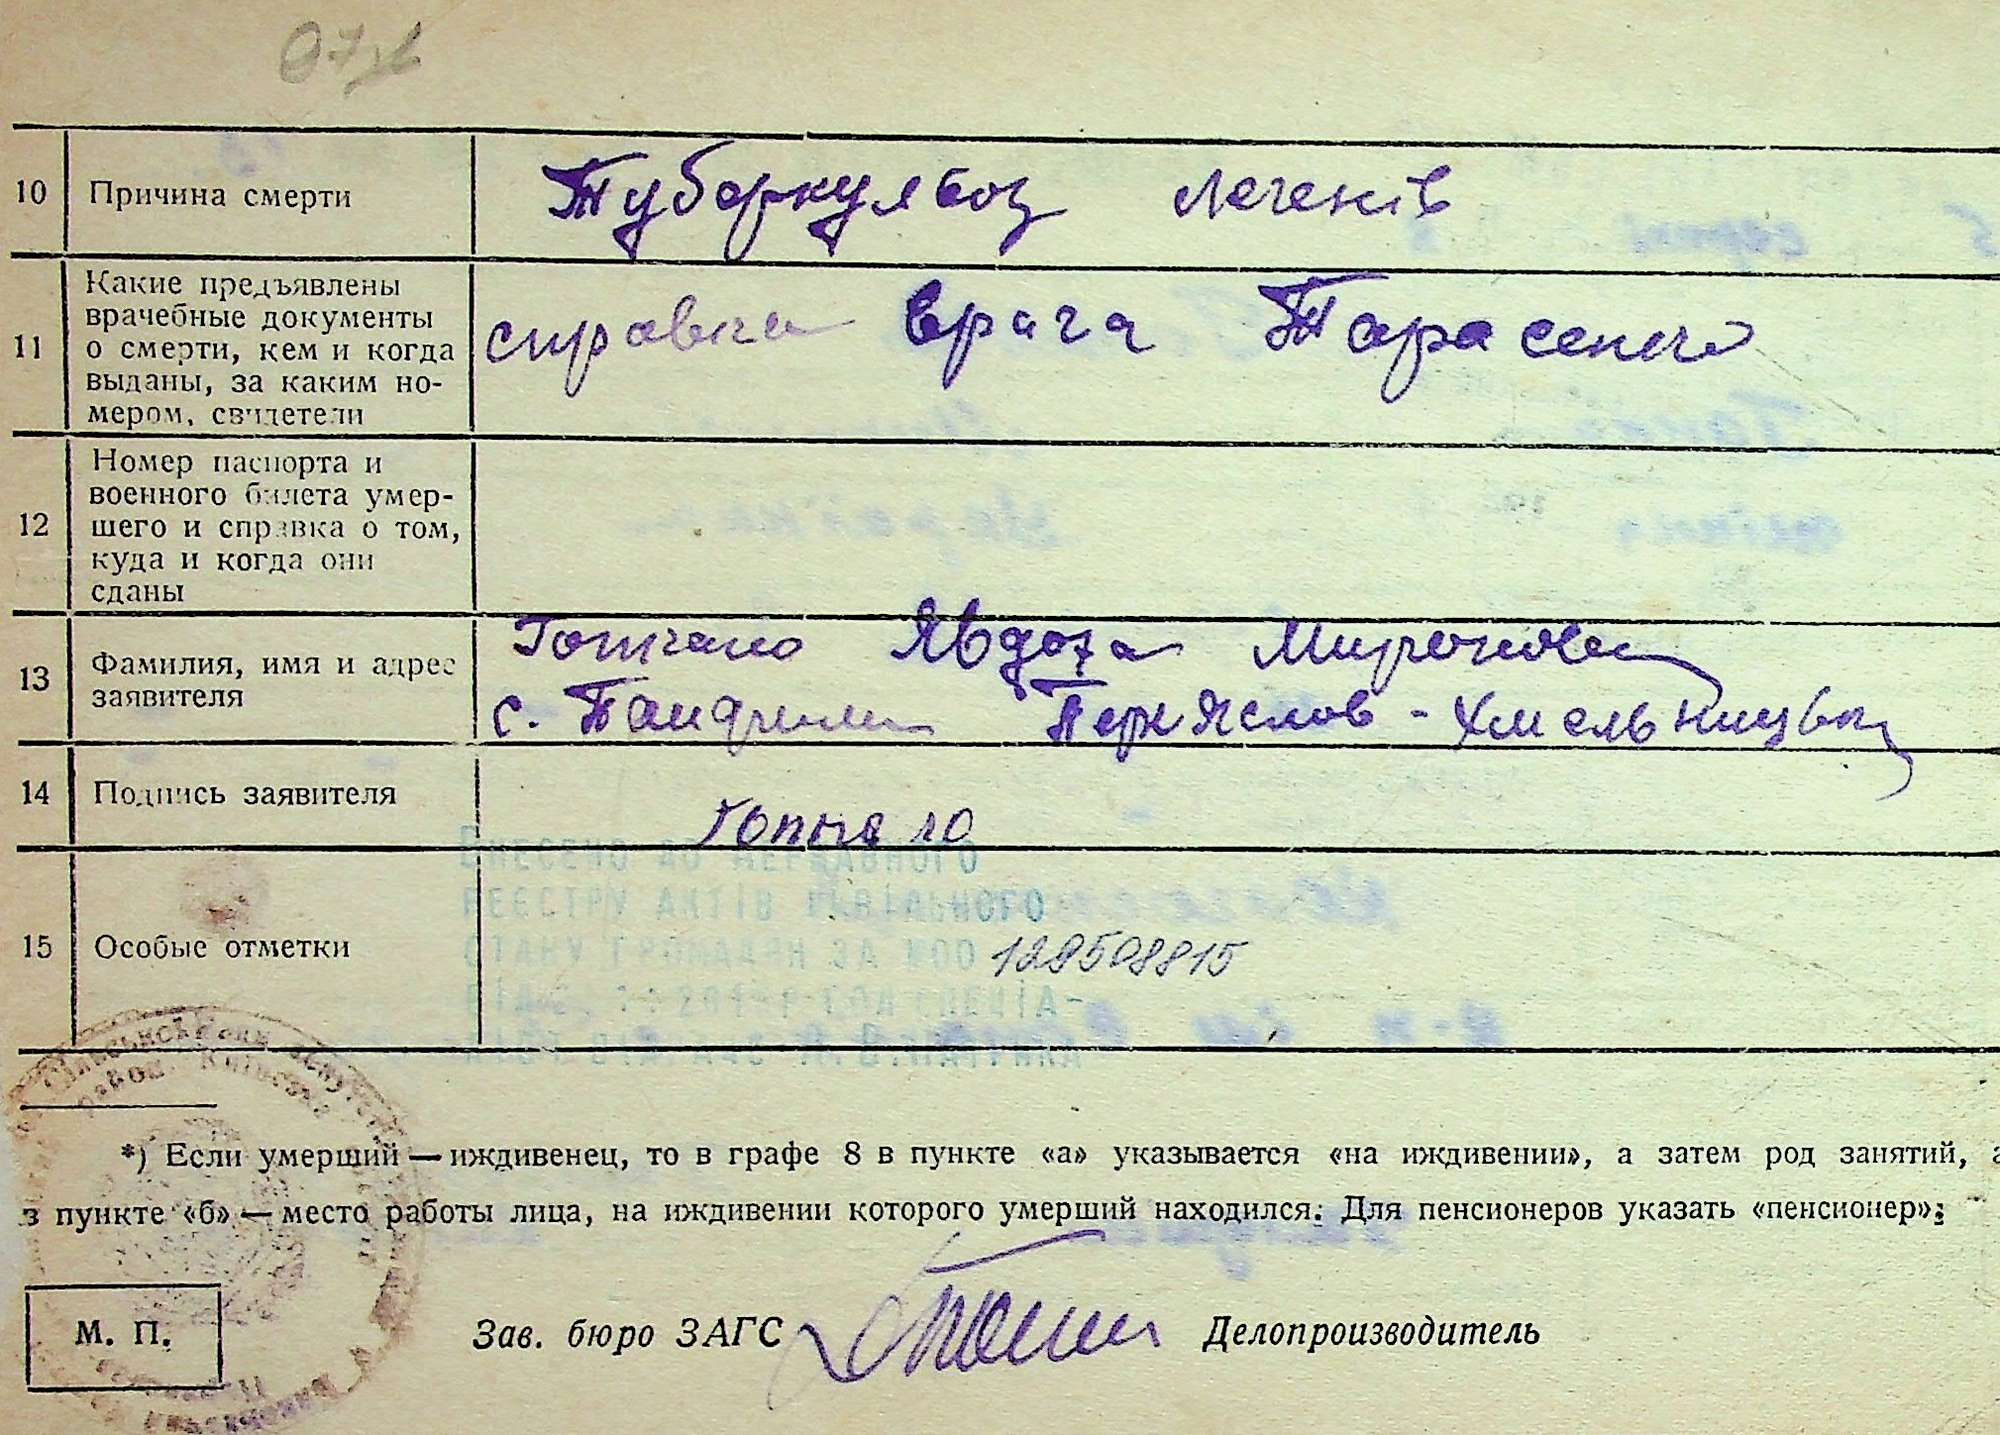 10 Причина смерти Туберкульоз легенів
11 Какие предъявлены
врачебные документы
о смерти, кем и когда
выданы, за каким но-
мером, свидетели
справка врача Тарасенко
12 Номер паспорта и
военного билета умер-
шего и справка о том,
куда и когда они
сданы
13 Фамилия, имя и адрес
заявителя
Явдоха Мироновна
с. Переяслов-Хмельницьк
14 Подпись заявителя
15 Особые отметки
Внесено до державного
реєстру актів цивільного
стану громадян за №00 129508815
*) Если умерший — иждивенец, то в графе 8 в пункте «а» указывается «на иждивении», а затем род занятий, а
в пункте «б» — место работы лица, на иждивении которого умерший находился. Для пенсионеров указать «пенсионер».
М. П. Зав. бюро ЗАГС Делопроизводитель